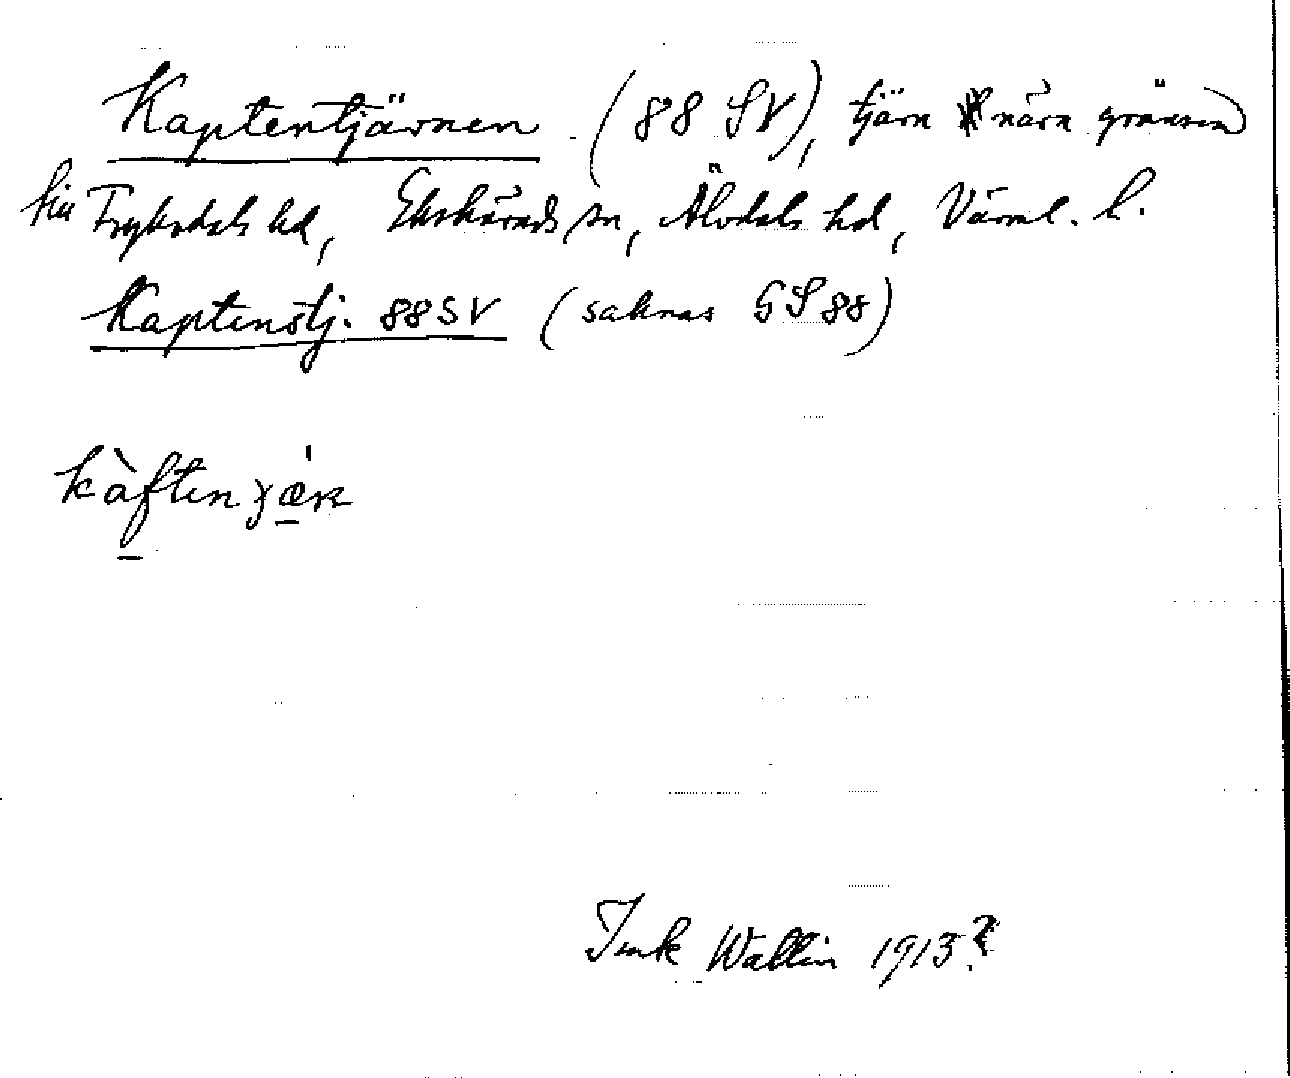 Kaptentjärnen (88 SV), tjärn nära gränsen
till Fryksdals hd, Ekshärads sn, Älvdals hd, Värml. l.
Kaptenstj. 88 SV (saknas GS 88)
kàften
Wallin 1913?